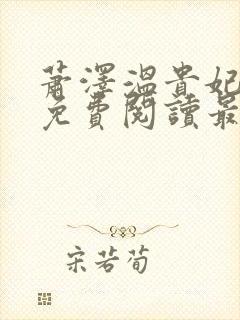 蕭澤溫貴妃
免費閱讀最
宋若荀